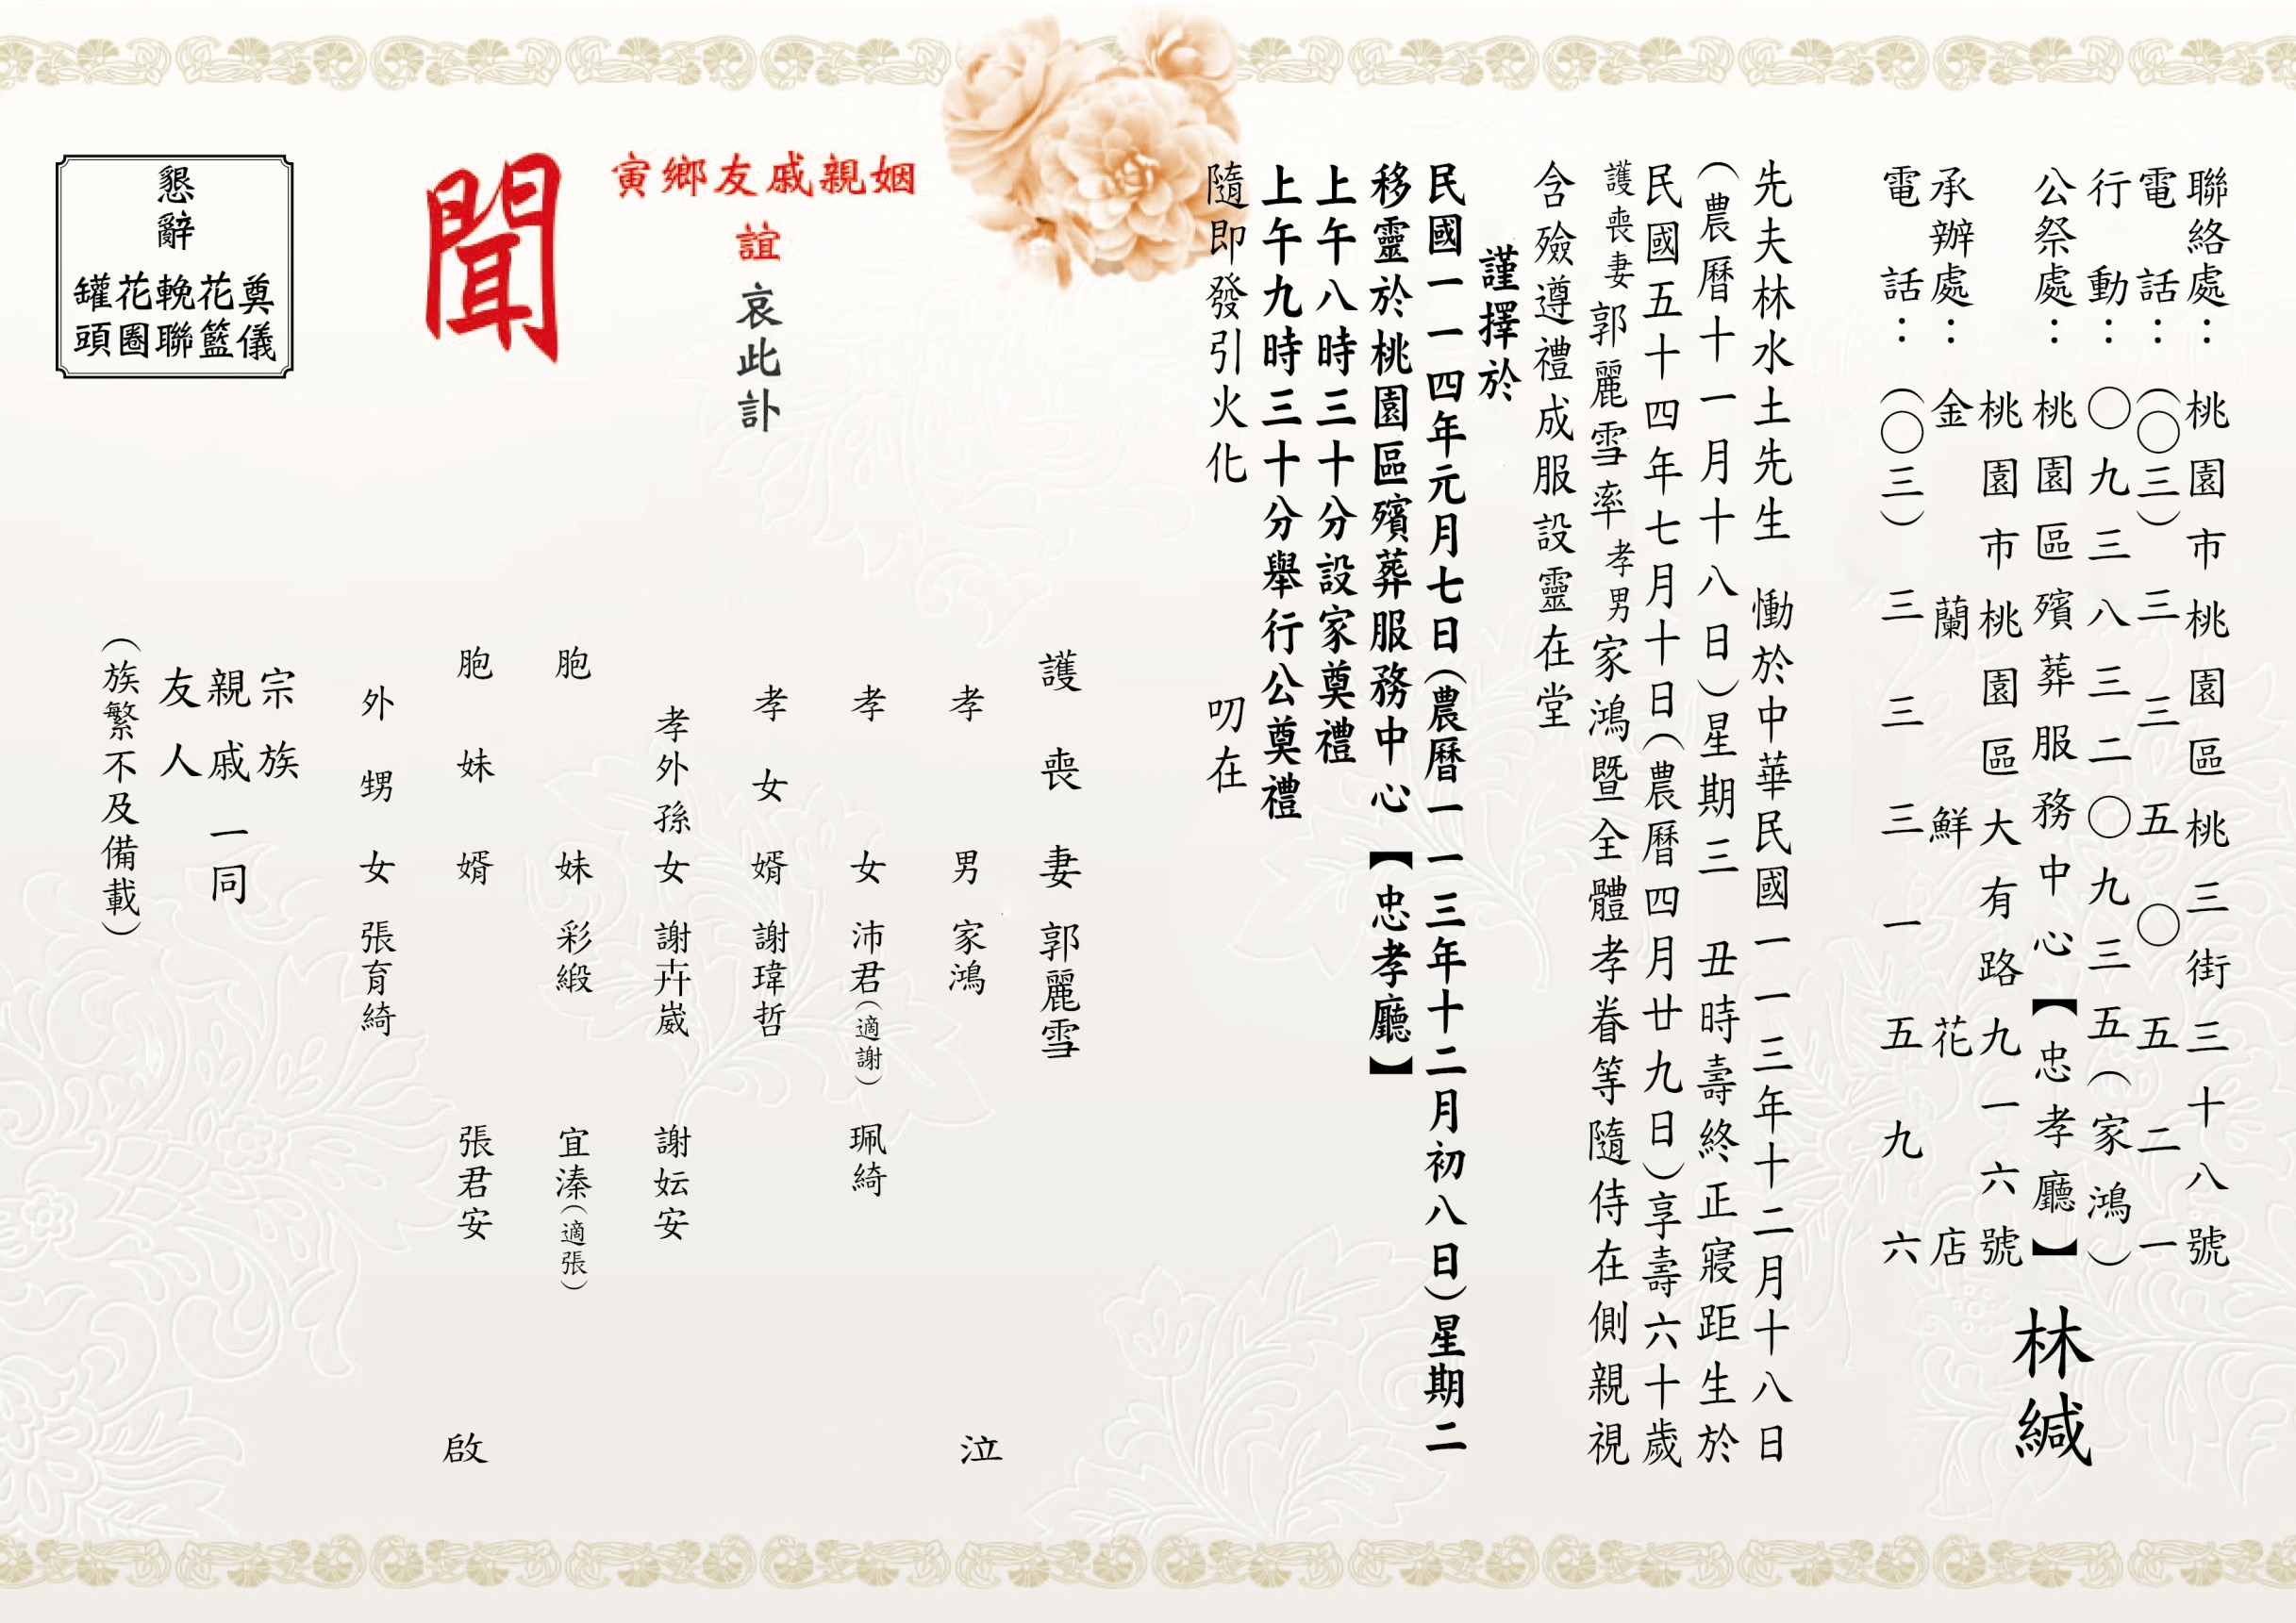 聯絡處：桃園市桃園區桃三街三十八號
電話：（〇三）三三五〇五二一
行動：〇九三八三二〇九三五（家鴻）
公祭處：桃園區殯葬服務中心【忠孝廳】
桃園市桃園區大有路九一六號
承辦處：金蘭鮮花店
電話：（〇三）三三三一五九六
林緘
先夫林水土先生　慟於中華民國一一三年十二月十八日
（農曆十一月十八日）星期三　丑時壽終正寢距生於
民國五十四年七月十日（農曆四月廿九日）享壽六十歲
護喪妻郭麗雪率孝男家鴻暨全體孝眷等隨侍在側親視
含殮遵禮成服設靈在堂
謹擇於
民國一一四年元月七日（農曆一一三年十二月初八日）星期二
移靈於桃園區殯葬服務中心【忠孝廳】
上午八時三十分設家奠禮
上午九時三十分舉行公奠禮
隨即發引火化　叨在
姻親戚友鄉寅
誼
哀此訃
聞
護喪妻　郭麗雪
孝男　家鴻
泣
孝女　沛君（適謝）　珮綺
孝女婿　謝瑋哲
孝外孫女　謝卉崴　謝妘安
胞妹　彩緞　宜溱（適張）
胞妹婿　張君安
啟
外甥女　張育綺
宗族
親戚一同
友人
（族繁不及備載）
懇辭
奠儀
花籃
輓聯
花圈
罐頭